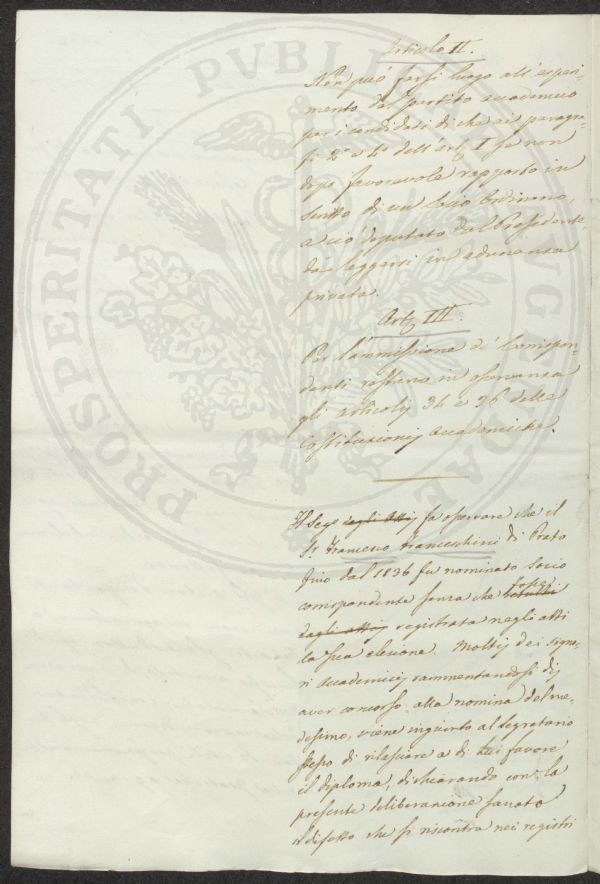 Articolo II.
Non può farsi luogo all'esperi-
mento del Partito accademico
per i candidati di che ai paragra-
fi 2° e 4° dell'art. I se non
dopo favorevole rapporto in
scritto di un socio Ordinario,
a ciò deputato dal Presidente,
da leggersi in adunanza
privata.
Art. III.
Per l'ammissione de' Corrispon-
denti restano in osservanza
gli articolij 34 e 36 delle
Costituzionij Accademiche.
Il Seg.° degli Attij fa osservare che il
S.r Francesco Franceschini di Prato
fino dal 1836 fu nominato Socio
corrispondente senza che fosse
dagli attij registrata negli atti
la sua elezione. Moltij dei Signo-
ri Accademicij rammentandosi dij
aver concorso alla nomina del me-
desimo, viene ingiunto al Segretario
stesso di rilasciare a di lui favore
il diploma, dichiarando con la
presente deliberazione sanato
il difetto che si riscontra nei registri
PROSPERITATI PVBLICAE AVGENDAE